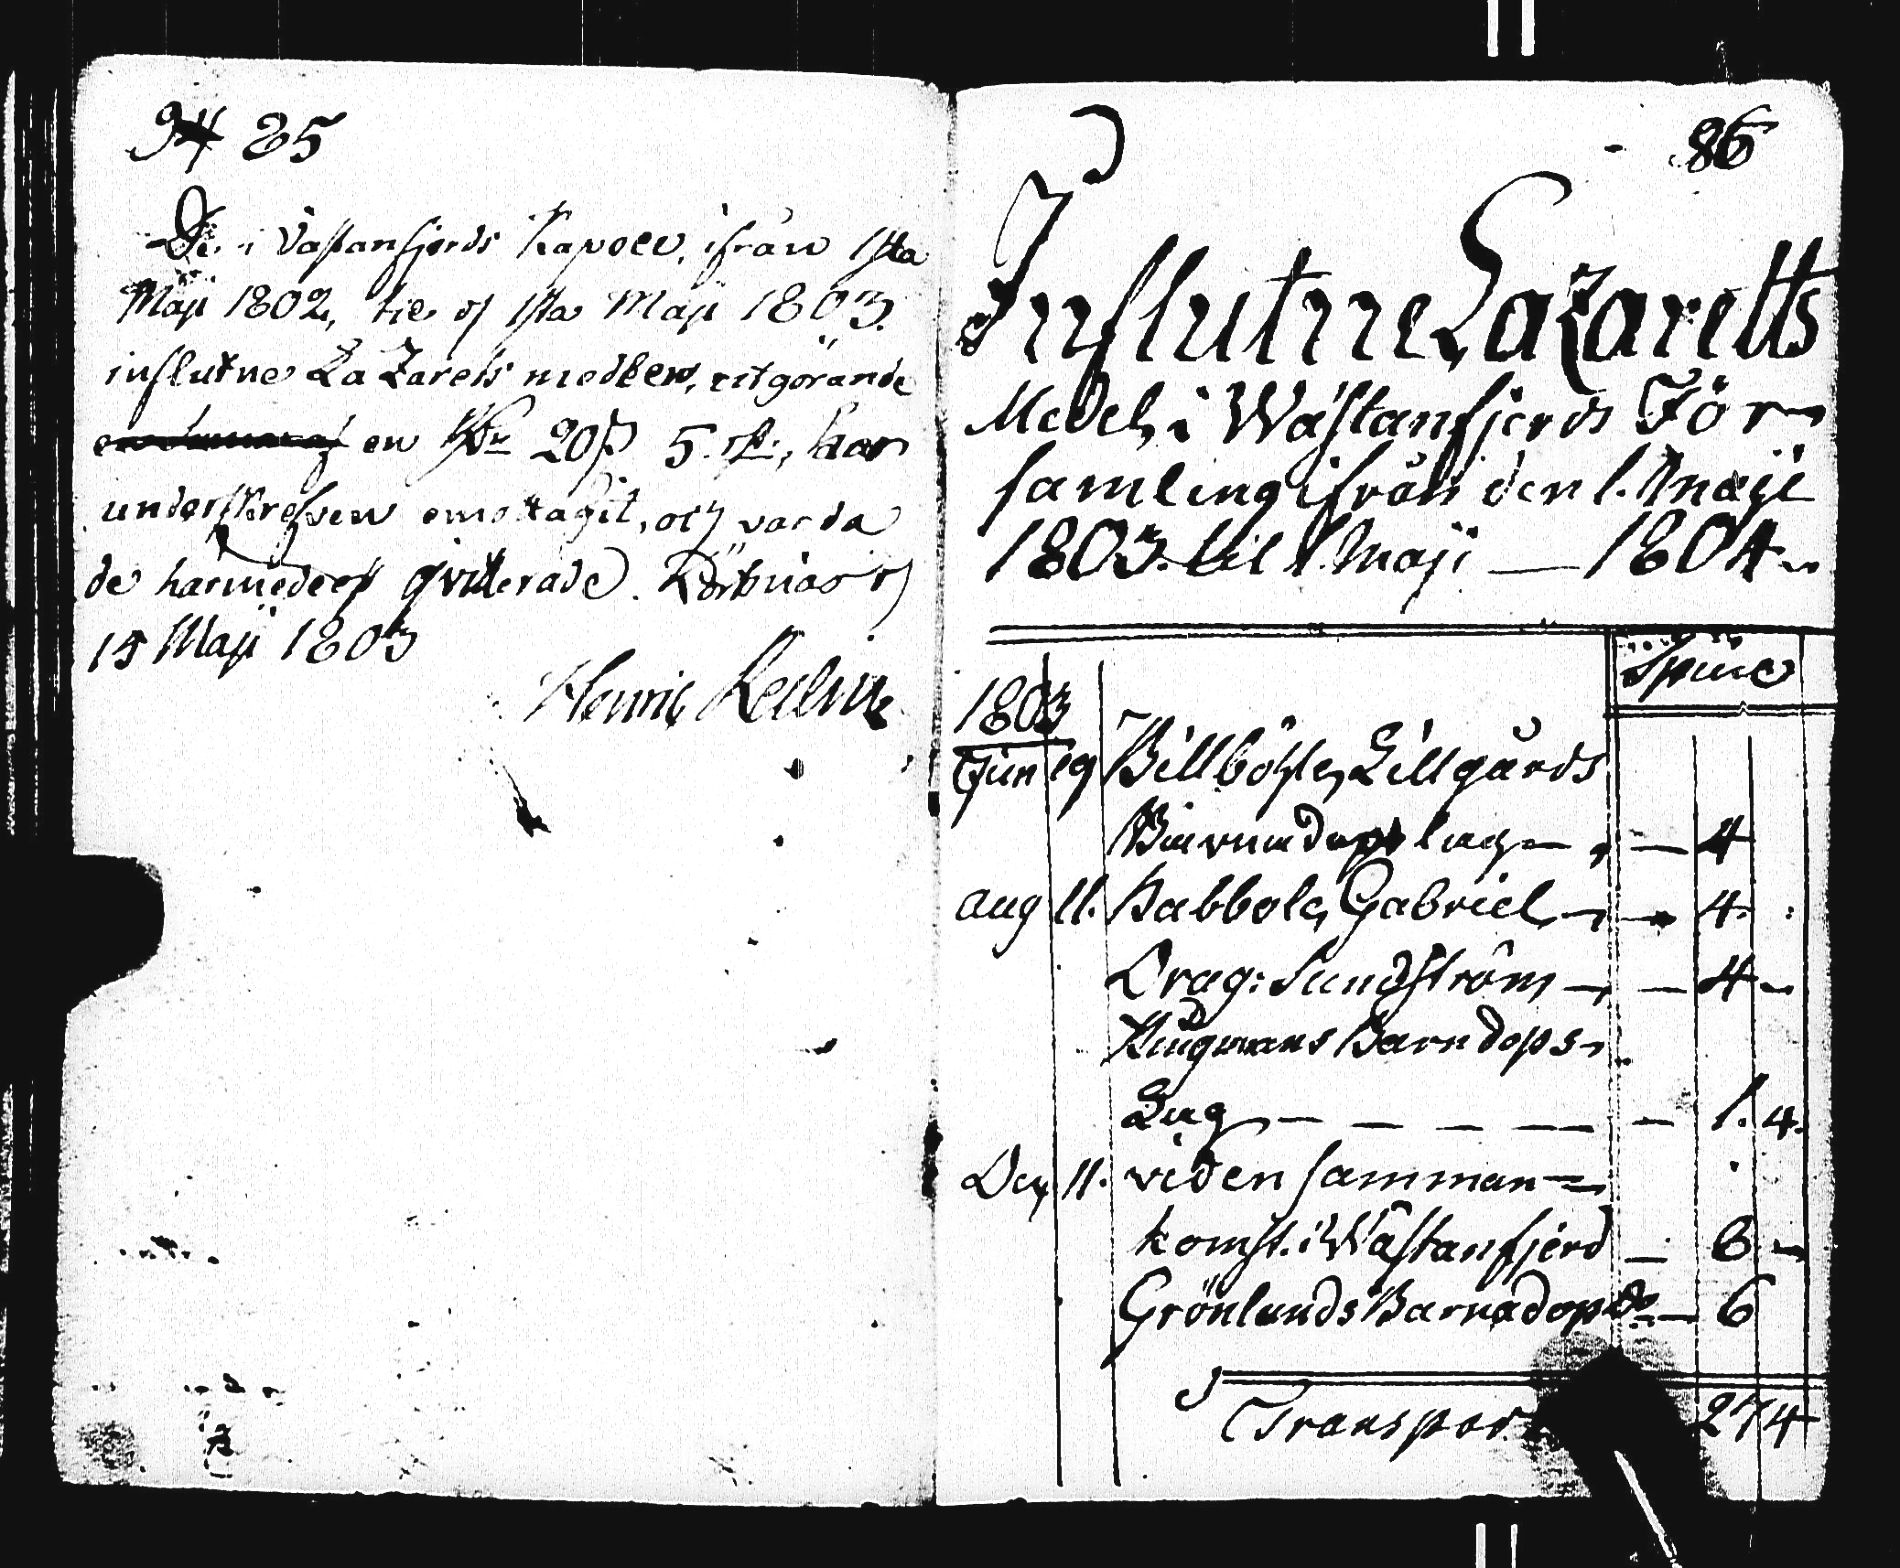 85
De i Västanfjerds Kapell, ifrån 1sta
Maji 1802, til och 1sta Maji 1803.
influtne LaZarets medlen, utgörande
en 20 5 har
underskrefven emottagit, och varda
de härmedelst qvitterade. Kimito och
15 Maji 1803
Henric
86
Influtne LaZaretts
Medel, i Wästanfjerds För-
samling ifrån den 1. Maji
1803. til 1. Maji — 1804.
1803
Jun 19 Billböhle, Lillgårds
lag — 4
Aug 11. Kabböle, Gabriel — 4.
Drag: Sundström — 4 -
Barndops-
Lag — 1. 4.
Dec. 11. viden samman-
komst. i Wästanfjerd — 8 -
Grönlunds Barnadop — 6
Transport 27 4